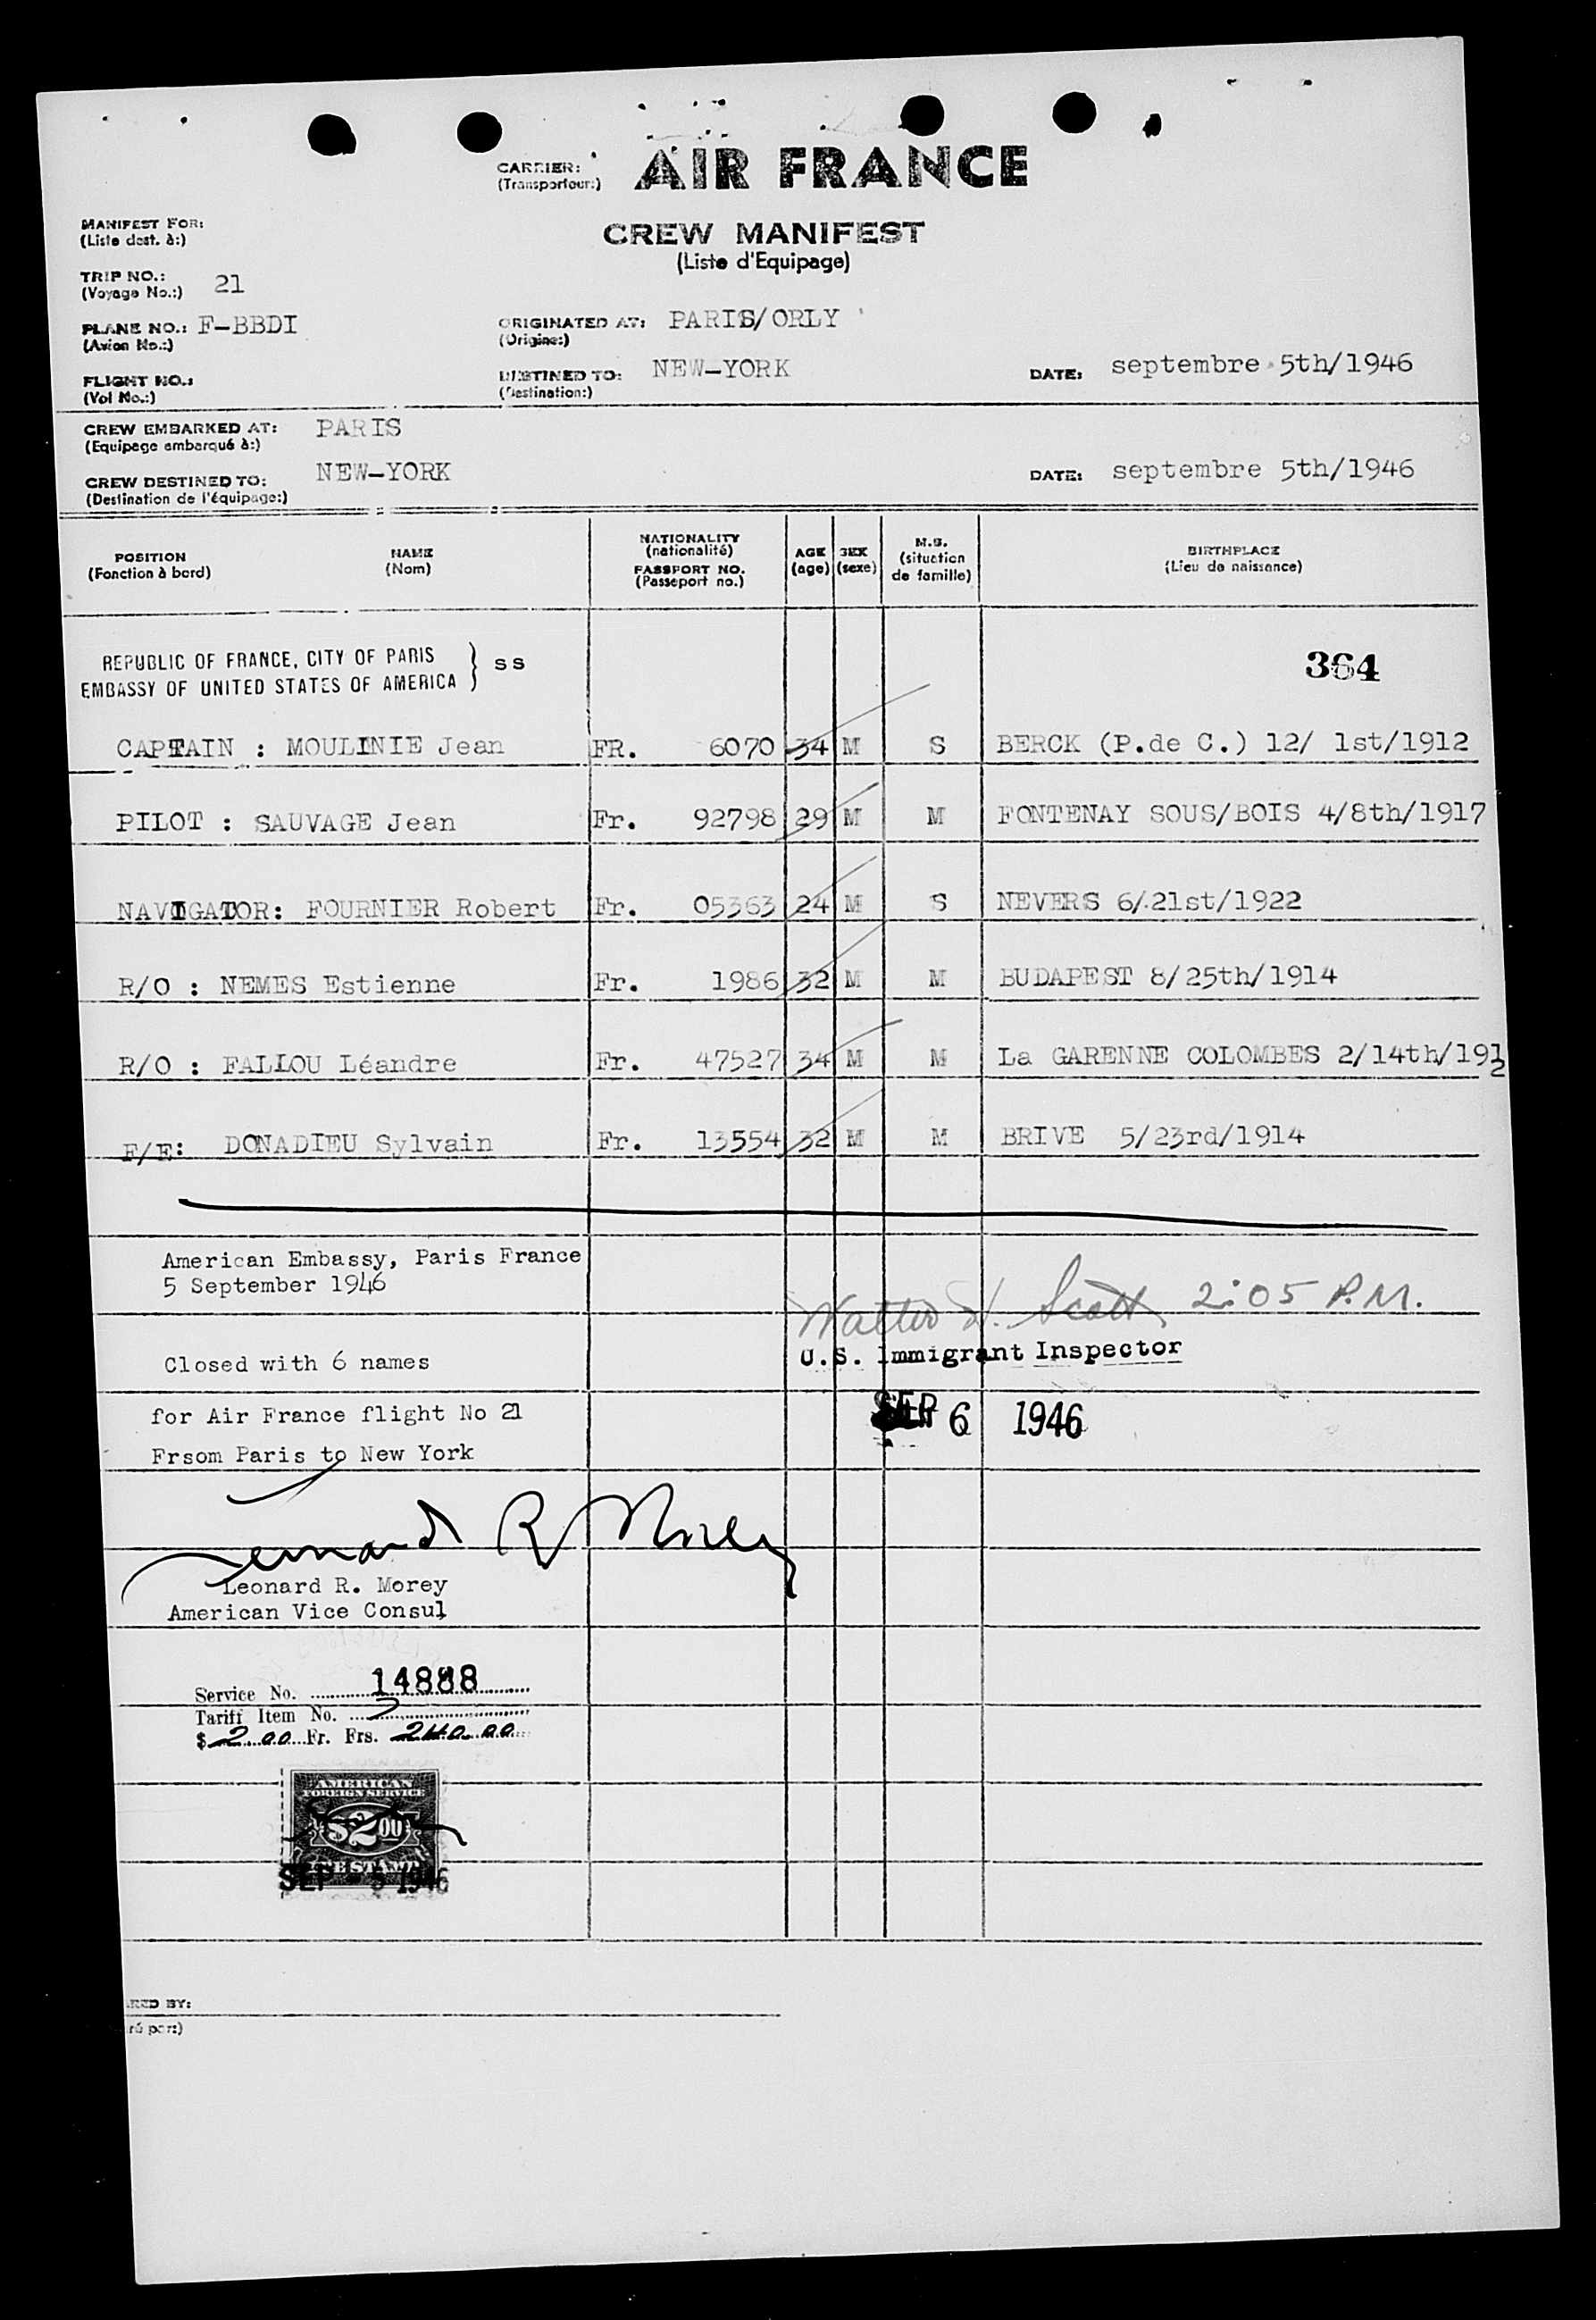 CARRIER: AIR FRANCE
(Transporteur:)
MANIFEST FOR:
(Liste dest. à:)
CREW MANIFEST
(Liste d'Equipage)
TRIP NO.: 21
(Voyage No.:)
PLANE NO.: F-BBDI
(Avion No.:)
ORIGINATED AT: PARIS/ORLY
(Origine:)
FLIGHT NO.:
(Vol No.:)
DESTINED TO: NEW-YORK
(Destination:)
DATE: septembre 5th/1946
CREW EMBARKED AT: PARIS
(Equipage embarqué à:)
CREW DESTINED TO: NEW-YORK
(Destination de l'équipage:)
DATE: septembre 5th/1946
POSITION
(Fonction à bord)
NAME
(Nom)
NATIONALITY
(nationalité)
PASSPORT NO.
(Passeport no.)
AGE
(age)
SEX
(sexe)
M.S.
(situation
de famille)
BIRTHPLACE
(Lieu de naissance)
REPUBLIC OF FRANCE, CITY OF PARIS
EMBASSY OF UNITED STATES OF AMERICA } SS
364
CAPTAIN : MOULINIE Jean FR. 6070 34 M S BERCK (P.de C.) 12/ 1st/1912
PILOT : SAUVAGE Jean Fr. 92798 29 M M FONTENAY SOUS/BOIS 4/8th/1917
NAVIGATOR: FOURNIER Robert Fr. 05363 24 M S NEVERS 6/21st/1922
R/O : NEMES Estienne Fr. 1986 32 M M BUDAPEST 8/25th/1914
R/O : FALLOU Léandre Fr. 47527 34 M M La GARENNE COLOMBES 2/14th/1912
F/E: DONADIEU Sylvain Fr. 13554 32 M M BRIVE 5/23rd/1914
American Embassy, Paris France
5 September 1946
Walter H. Scott 2:05 P.M.
U.S. Immigrant Inspector
Closed with 6 names
SEP 6 1946
for Air France flight No 21
Frsom Paris to New York
Leonard R Morey
Leonard R. Morey
American Vice Consul
Service No. 14888
Tariff Item No. 7
$ 2.00 Fr. Frs. 240.00
AMERICAN
FOREIGN SERVICE
$2.00
FEE STAMP
SEP 5 1946
RED BY:
ré par:)